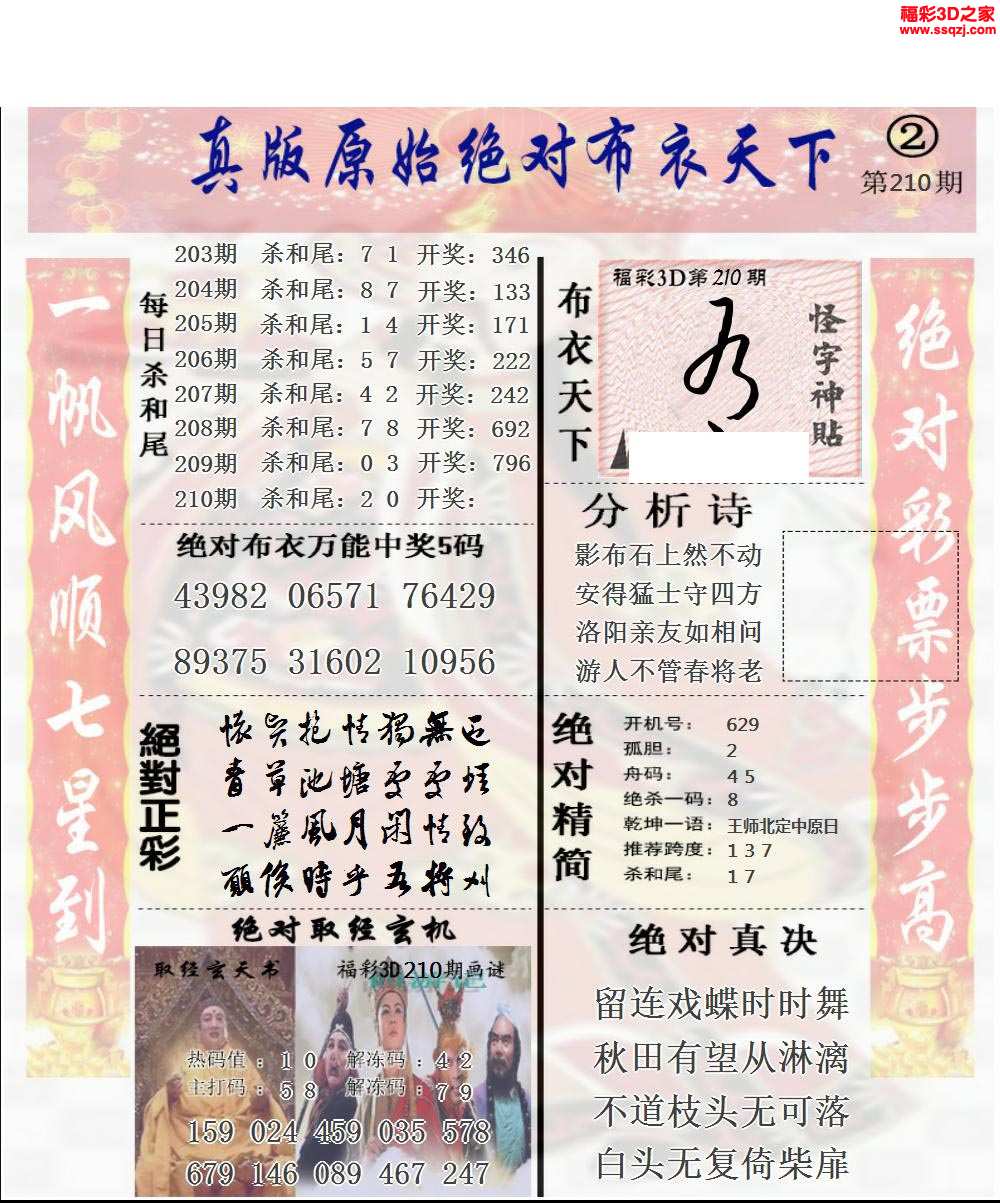 福彩3D之家
www.ssqzj.com
真版原始绝对布衣天下
②
第210期
一帆风顺七星到
每日杀和尾
203期 杀和尾：7 1 开奖：346
204期 杀和尾：8 7 开奖：133
205期 杀和尾：1 4 开奖：171
206期 杀和尾：5 7 开奖：222
207期 杀和尾：4 2 开奖：242
208期 杀和尾：7 8 开奖：692
209期 杀和尾：0 3 开奖：796
210期 杀和尾：2 0 开奖：
绝对布衣万能中奖5码
43982 06571 76429
89375 31602 10956
絕對正彩
青草池塘
一簾風月閑情致
時乎吾將
绝对取经玄机
取经玄天书
福彩3D210期画谜
热码值：1 0 解冻码：4 2
主打码：5 8 解冻码：7 9
159 024 459 035 578
679 146 089 467 247
布衣天下
福彩3D第210期
怪字神貼
分析诗
影布石上然不动
安得猛士守四方
洛阳亲友如相问
游人不管春将老
绝对精简
开机号： 629
孤胆： 2
舟码： 4 5
绝杀一码：8
乾坤一语：王师北定中原日
推荐跨度：1 3 7
杀和尾： 1 7
绝对真决
留连戏蝶时时舞
秋田有望从淋漓
不道枝头无可落
白头无复倚柴扉
绝对彩票步步高